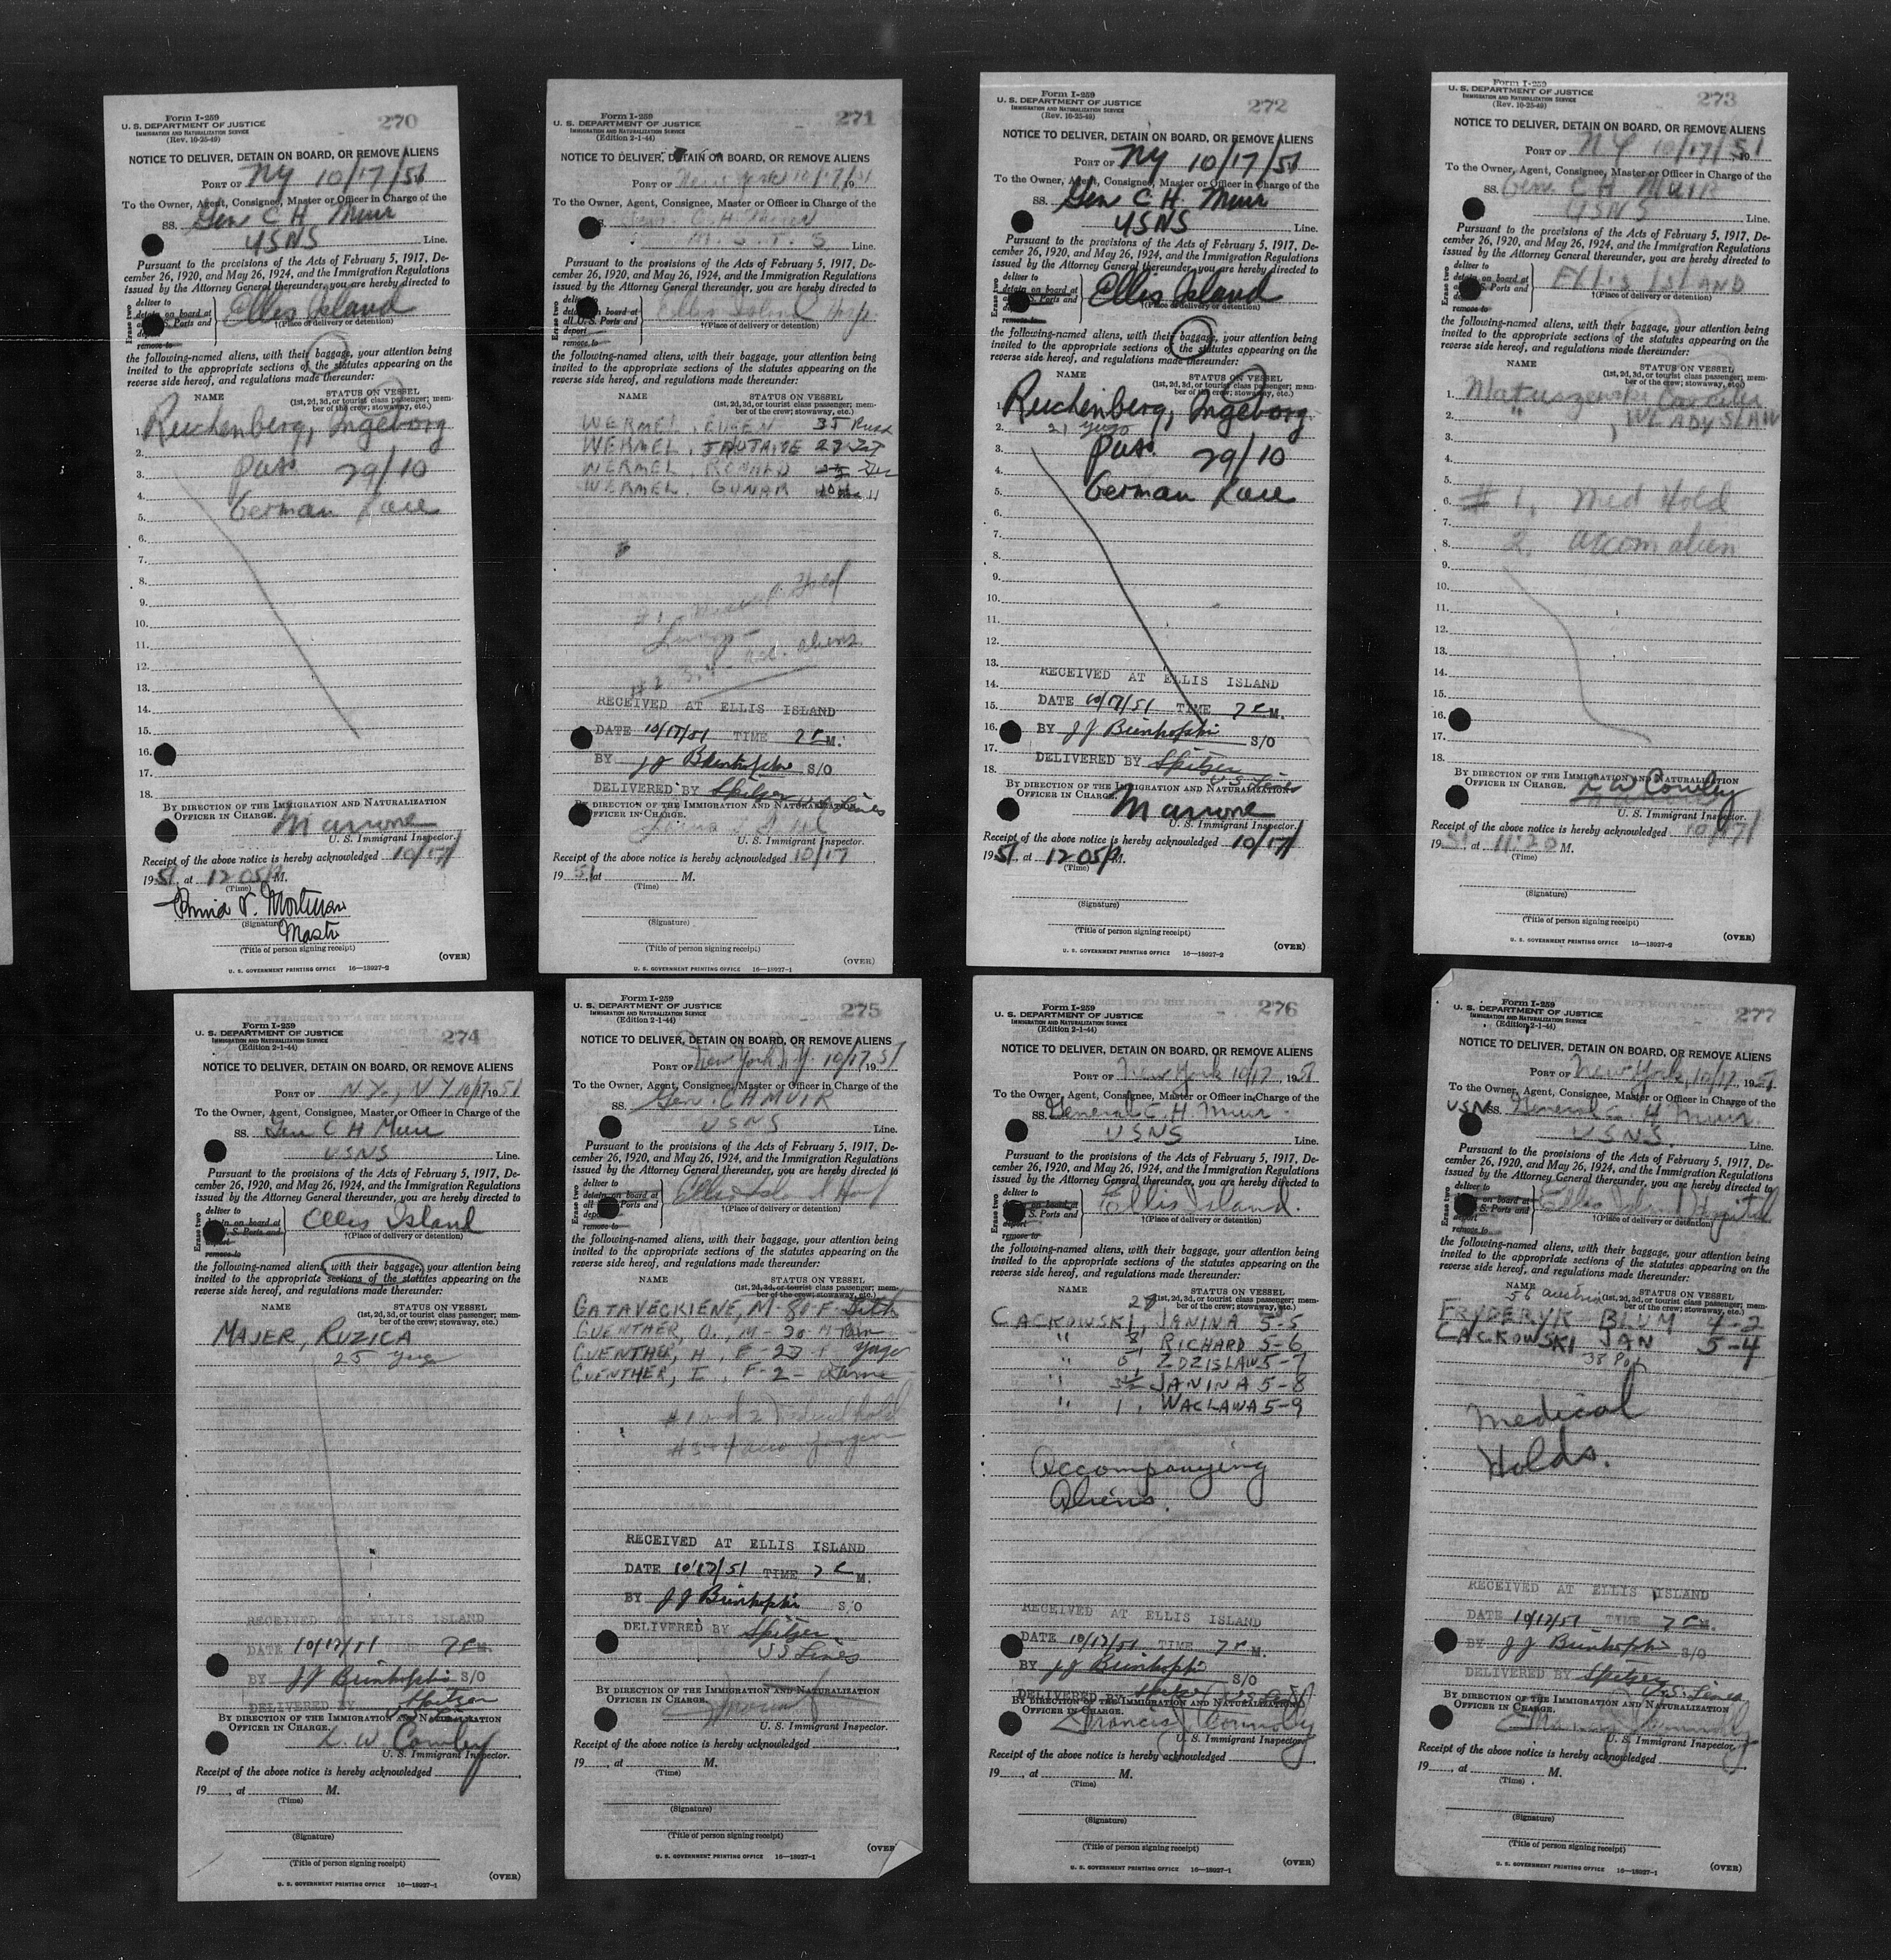 Form I-259
U. S. DEPARTMENT OF JUSTICE
IMMIGRATION AND NATURALIZATION SERVICE
(Rev. 10-25-49)
270
NOTICE TO DELIVER, DETAIN ON BOARD, OR REMOVE ALIENS
PORT OF NY 10/17/51
To the Owner, Agent, Consignee, Master or Officer in Charge of the
SS. Gen C H Muir
USNS Line.
Pursuant to the provisions of the Acts of February 5, 1917, De-
cember 26, 1920, and May 26, 1924, and the Immigration Regulations
issued by the Attorney General thereunder, you are hereby directed to
Erase two
deliver to
detain on board at
S. Ports and
remove to
Ellis Island
†(Place of delivery or detention)
the following-named aliens, with their baggage, your attention being
invited to the appropriate sections of the statutes appearing on the
reverse side hereof, and regulations made thereunder:
NAME STATUS ON VESSEL
(1st, 2d, 3d, or tourist class passenger; mem-
ber of the crew; stowaway, etc.)
1. Reichenberg, Ingeborg
2.
3. Pass 29/10
4.
5. German Race
6.
7.
8.
9.
10.
11.
12.
13.
14.
15.
16.
17.
18.
BY DIRECTION OF THE IMMIGRATION AND NATURALIZATION
OFFICER IN CHARGE. Marrone
U. S. Immigrant Inspector.
Receipt of the above notice is hereby acknowledged 10/17/
1951, at 12 05 P M.
(Time)
(Signature)
(Title of person signing receipt)
(OVER)
U. S. GOVERNMENT PRINTING OFFICE 16—18927-2
Form I-259
U. S. DEPARTMENT OF JUSTICE
IMMIGRATION AND NATURALIZATION SERVICE
(Edition 2-1-44)
271
NOTICE TO DELIVER, DETAIN ON BOARD, OR REMOVE ALIENS
PORT OF New York 10/17/51
To the Owner, Agent, Consignee, Master or Officer in Charge of the
M. S. T. S Line.
Pursuant to the provisions of the Acts of February 5, 1917, De-
cember 26, 1920, and May 26, 1924, and the Immigration Regulations
issued by the Attorney General thereunder, you are hereby directed to
Erase two
deliver to
detain on board at
all U. S. Ports and
deport
remove to
Ellis Island Hosp.
†(Place of delivery or detention)
the following-named aliens, with their baggage, your attention being
invited to the appropriate sections of the statutes appearing on the
reverse side hereof, and regulations made thereunder:
NAME STATUS ON VESSEL
(1st, 2d, 3d, or tourist class passenger; mem-
ber of the crew; stowaway, etc.)
WERMEL, EUGEN 35 Russ
WERMEL,
WERMEL,
WERMEL, GUNAR
#1 Medical Hold
#2 3.4 acc. aliens
RECEIVED AT ELLIS ISLAND
DATE 10/17/51 TIME 7 P M.
BY S/O
DELIVERED BY Spitzer U.S. Lines
BY DIRECTION OF THE IMMIGRATION AND NATURALIZATION
OFFICER IN CHARGE.
U. S. Immigrant Inspector.
Receipt of the above notice is hereby acknowledged 10/17
1951, at M.
(Time)
(Signature)
(Title of person signing receipt)
(OVER)
U. S. GOVERNMENT PRINTING OFFICE 16—18927-1
Form I-259
U. S. DEPARTMENT OF JUSTICE
IMMIGRATION AND NATURALIZATION SERVICE
(Rev. 10-25-49)
272
NOTICE TO DELIVER, DETAIN ON BOARD, OR REMOVE ALIENS
PORT OF NY 10/17/51
To the Owner, Agent, Consignee, Master or Officer in Charge of the
SS. Gen C H Muir
USNS Line.
Pursuant to the provisions of the Acts of February 5, 1917, De-
cember 26, 1920, and May 26, 1924, and the Immigration Regulations
issued by the Attorney General thereunder, you are hereby directed to
Erase two
deliver to
detain on board at
S. Ports and
remove to
Ellis Island
†(Place of delivery or detention)
the following-named aliens, with their baggage, your attention being
invited to the appropriate sections of the statutes appearing on the
reverse side hereof, and regulations made thereunder:
NAME STATUS ON VESSEL
(1st, 2d, 3d, or tourist class passenger; mem-
ber of the crew; stowaway, etc.)
1. Reichenberg, Ingeborg
2. 21 yugo
3. Pass 29/10
4.
5. German Race
6.
7.
8.
9.
10.
11.
12.
13.
RECEIVED AT ELLIS ISLAND
14.
15. DATE 10/17/51 TIME 7 P M.
16. BY S/O
17. DELIVERED BY Spitzer
18. U.S. Lines
BY DIRECTION OF THE IMMIGRATION AND NATURALIZATION
OFFICER IN CHARGE. Marrone
U. S. Immigrant Inspector.
Receipt of the above notice is hereby acknowledged 10/17/
1951, at 12 05 P M.
(Time)
(Signature)
(Title of person signing receipt)
(OVER)
U. S. GOVERNMENT PRINTING OFFICE 16—18927-2
Form I-259
U. S. DEPARTMENT OF JUSTICE
IMMIGRATION AND NATURALIZATION SERVICE
(Rev. 10-25-49)
273
NOTICE TO DELIVER, DETAIN ON BOARD, OR REMOVE ALIENS
PORT OF NY 10/17/51
To the Owner, Agent, Consignee, Master or Officer in Charge of the
SS. Gen. C H MUIR
USNS Line.
Pursuant to the provisions of the Acts of February 5, 1917, De-
cember 26, 1920, and May 26, 1924, and the Immigration Regulations
issued by the Attorney General thereunder, you are hereby directed to
Erase two
deliver to
detain on board at
S. Ports and
remove to
ELLIS ISLAND
†(Place of delivery or detention)
the following-named aliens, with their baggage, your attention being
invited to the appropriate sections of the statutes appearing on the
reverse side hereof, and regulations made thereunder:
NAME STATUS ON VESSEL
(1st, 2d, 3d, or tourist class passenger; mem-
ber of the crew; stowaway, etc.)
1. Matuszewski
2. " , WLADYSLAW
3.
4.
5.
6. # 1. Med Hold
7.
8. 2. accom alien
9.
10.
11.
12.
13.
14.
15.
16.
17.
18.
BY DIRECTION OF THE IMMIGRATION AND NATURALIZATION
OFFICER IN CHARGE. L W Cowley
U. S. Immigrant Inspector.
Receipt of the above notice is hereby acknowledged 10/17/
1951 at 11:20 M.
(Time)
(Signature)
(Title of person signing receipt)
(OVER)
U. S. GOVERNMENT PRINTING OFFICE 16—18927-2
Form I-259
U. S. DEPARTMENT OF JUSTICE
IMMIGRATION AND NATURALIZATION SERVICE
(Edition 2-1-44)
274
NOTICE TO DELIVER, DETAIN ON BOARD, OR REMOVE ALIENS
PORT OF N.Y., N Y 10/17 1951
To the Owner, Agent, Consignee, Master or Officer in Charge of the
SS. Gen C H Muir
USNS Line.
Pursuant to the provisions of the Acts of February 5, 1917, De-
cember 26, 1920, and May 26, 1924, and the Immigration Regulations
issued by the Attorney General thereunder, you are hereby directed to
Erase two
deliver to
detain on board at
S. Ports and
remove to
Ellis Island
†(Place of delivery or detention)
the following-named aliens, with their baggage, your attention being
invited to the appropriate sections of the statutes appearing on the
reverse side hereof, and regulations made thereunder:
NAME STATUS ON VESSEL
(1st, 2d, 3d, or tourist class passenger; mem-
ber of the crew; stowaway, etc.)
MAJER, RUZICA
25 yugo
RECEIVED AT ELLIS ISLAND
DATE 10/17/51 TIME 7 P M.
BY S/O
DELIVERED BY Spitzer
BY DIRECTION OF THE IMMIGRATION AND NATURALIZATION
OFFICER IN CHARGE.
L. W. Cowley
U. S. Immigrant Inspector.
Receipt of the above notice is hereby acknowledged
19 , at M.
(Time)
(Signature)
(Title of person signing receipt)
(OVER)
U. S. GOVERNMENT PRINTING OFFICE 16—18927-1
Form I-259
U. S. DEPARTMENT OF JUSTICE
IMMIGRATION AND NATURALIZATION SERVICE
(Edition 2-1-44)
275
NOTICE TO DELIVER, DETAIN ON BOARD, OR REMOVE ALIENS
PORT OF New York N.Y. 10/17 1951
To the Owner, Agent, Consignee, Master or Officer in Charge of the
SS. Gen. C H MUIR
USNS Line.
Pursuant to the provisions of the Acts of February 5, 1917, De-
cember 26, 1920, and May 26, 1924, and the Immigration Regulations
issued by the Attorney General thereunder, you are hereby directed to
Erase two
deliver to
detain on board at
all S. Ports and
deport
remove to
Ellis Island Hosp
†(Place of delivery or detention)
the following-named aliens, with their baggage, your attention being
invited to the appropriate sections of the statutes appearing on the
reverse side hereof, and regulations made thereunder:
NAME STATUS ON VESSEL
(1st, 2d, 3d, or tourist class passenger; mem-
ber of the crew; stowaway, etc.)
GATAVECKIENE, M - 80 - F - Lith
GUENTHER, O., M - 30
GUENTHER, H, F - 23 - F Yugo
GUENTHER, I, F - 2 -
#1 and 2 medical hold
#3-4 accom
RECEIVED AT ELLIS ISLAND
DATE 10/17/51 TIME 7 P M.
BY S/O
DELIVERED BY Spitzer
US Lines
BY DIRECTION OF THE IMMIGRATION AND NATURALIZATION
OFFICER IN CHARGE.
U. S. Immigrant Inspector.
Receipt of the above notice is hereby acknowledged
19 , at M.
(Time)
(Signature)
(Title of person signing receipt)
(OVER)
U. S. GOVERNMENT PRINTING OFFICE 16—18927-1
Form I-259
U. S. DEPARTMENT OF JUSTICE
IMMIGRATION AND NATURALIZATION SERVICE
(Edition 2-1-44)
276
NOTICE TO DELIVER, DETAIN ON BOARD, OR REMOVE ALIENS
PORT OF New York 10/17, 1951
To the Owner, Agent, Consignee, Master or Officer in Charge of the
SS. General C. H. Muir
USNS Line.
Pursuant to the provisions of the Acts of February 5, 1917, De-
cember 26, 1920, and May 26, 1924, and the Immigration Regulations
issued by the Attorney General thereunder, you are hereby directed to
Erase two
deliver to
detain on board at
S. Ports and
deport
remove to
Ellis Island.
†(Place of delivery or detention)
the following-named aliens, with their baggage, your attention being
invited to the appropriate sections of the statutes appearing on the
reverse side hereof, and regulations made thereunder:
NAME STATUS ON VESSEL
(1st, 2d, 3d, or tourist class passenger; mem-
ber of the crew; stowaway, etc.)
CACKOWSKI, JANINA 5-5
" 8, RICHARD 5-6
" 5, ZDZISLAW 5-7
" 3½ JANINA 5-8
" 1, WACLAWA 5-9
Accompanying
Aliens.
RECEIVED AT ELLIS ISLAND
DATE 10/17/51 TIME 7 P M.
BY S/O
DELIVERED BY Spitzer
BY DIRECTION OF THE IMMIGRATION AND NATURALIZATION
OFFICER IN CHARGE.
Francis J Connolly
U. S. Immigrant Inspector.
Receipt of the above notice is hereby acknowledged
19 , at M.
(Time)
(Signature)
(Title of person signing receipt)
(OVER)
U. S. GOVERNMENT PRINTING OFFICE 16—18927-1
Form I-259
U. S. DEPARTMENT OF JUSTICE
IMMIGRATION AND NATURALIZATION SERVICE
(Edition 2-1-44)
277
NOTICE TO DELIVER, DETAIN ON BOARD, OR REMOVE ALIENS
PORT OF New York, 10/17, 1951
To the Owner, Agent, Consignee, Master or Officer in Charge of the
USNSS. General C. H Muir.
USNS. Line.
Pursuant to the provisions of the Acts of February 5, 1917, De-
cember 26, 1920, and May 26, 1924, and the Immigration Regulations
issued by the Attorney General thereunder, you are hereby directed to
Erase two
deliver to
on board at
S. Ports and
deport
remove to
Ellis Island Hospital
†(Place of delivery or detention)
the following-named aliens, with their baggage, your attention being
invited to the appropriate sections of the statutes appearing on the
reverse side hereof, and regulations made thereunder:
NAME STATUS ON VESSEL
56 Austria (1st, 2d, 3d, or tourist class passenger; mem-
ber of the crew; stowaway, etc.)
FRYDERYK BLUM 4-2
CACKOWSKI JAN 5-4
38 Pol
Medical
Holds.
RECEIVED AT ELLIS ISLAND
DATE 10/17/51 TIME 7 P M.
BY S/O
DELIVERED BY Spitzer
U.S. Lines
BY DIRECTION OF THE IMMIGRATION AND NATURALIZATION
OFFICER IN CHARGE.
U. S. Immigrant Inspector.
Receipt of the above notice is hereby acknowledged
19 , at M.
(Time)
(Signature)
(Title of person signing receipt)
(OVER)
U. S. GOVERNMENT PRINTING OFFICE 16—18927-1